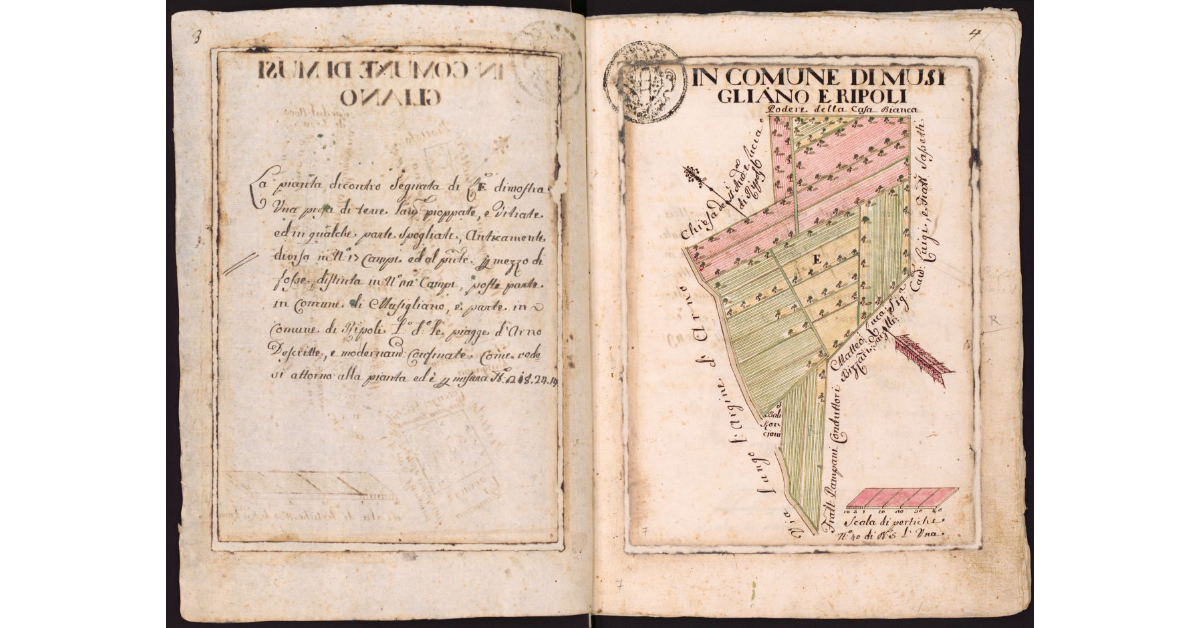 3
La pianta dicontro Segnata di Lr̃a E dimostra
Una presa di terre Lav.e pioppate, e Vitiate
ed in qualche parte Spogliate, Anticamente
divisa in N.º 17 Campi ed al pnte p mezzo di
fosse, distinta in N.º Campi, poste parte
in Comune di Musigliano, e parte in
Comune di Ripoli L.º d.º le piagge d'Arno
Descritte, e modernam.e Confinate Come vede
si attorno alla pianta ed è p misura 24.14
4
IN COMUNE DI MUSI
GLIANO E RIPOLI
Podere della Casa Bianca
Chiesa de SS. And.a e Lucia
di Ripoli
E
Via Lungo l'Argine d'Arno
Fratt. Pampani Conduttori
Matteo, Luca
Cav. Luigi, e Fratt.
Scala di pertiche
N.º 40 di B.a 5 l'Una
7
7
R